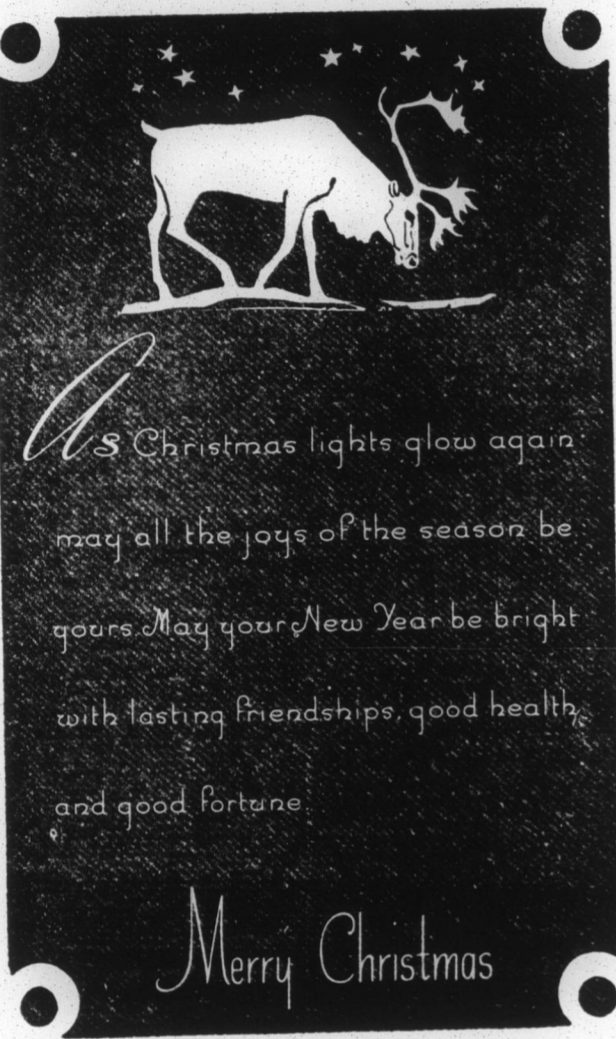 As Christmas lights glow again
may all the joys of the season be
yours. May your New Year be bright
with lasting friendships, good health,
and good fortune.
Merry Christmas